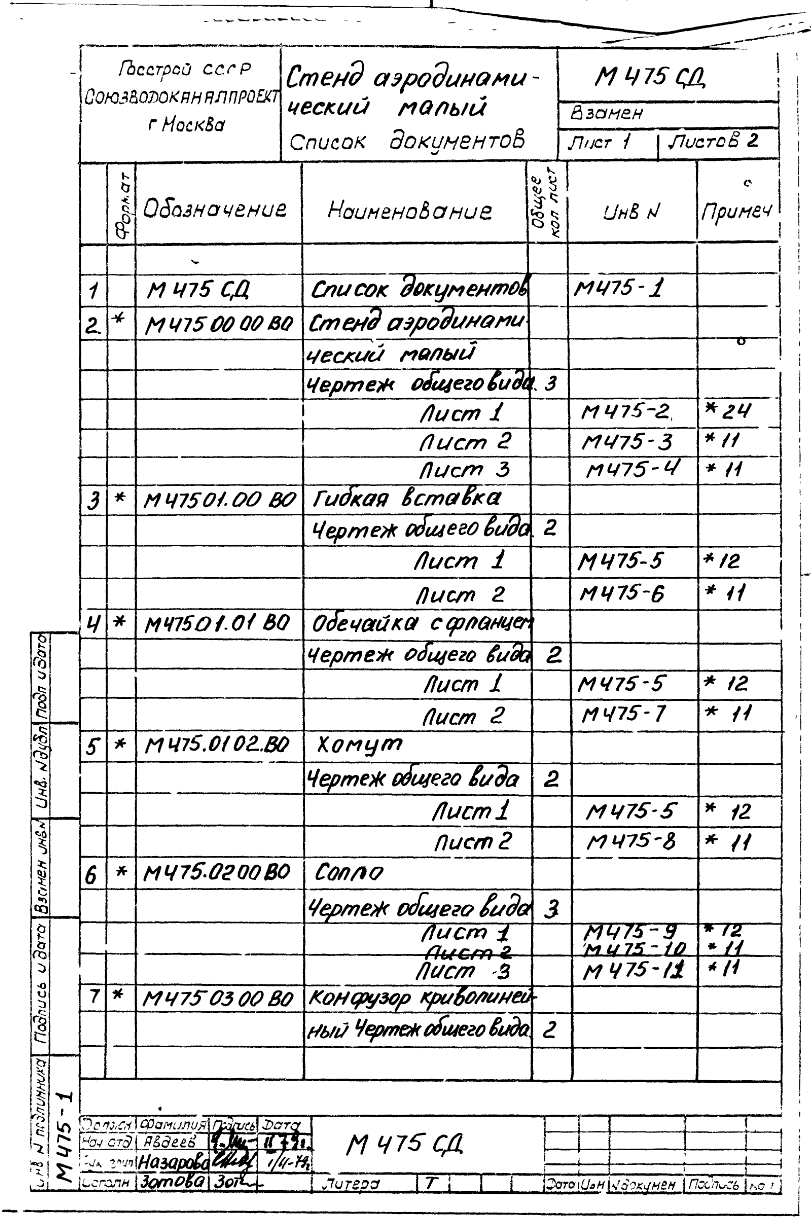 Госстрой СССР
СОЮЗВОДОКАНАЛПРОЕКТ
г Москва
Стенд аэродинами-
ческий малый
Список документов
М 475 СД
Взамен
Лист 1 Листов 2
Формат Обозначение Наименование Общее кол лист Инв N Примеч
1 М 475 СД Список документов М475-1
2 * М475 00 00 ВО Стенд аэродинами
ческий малый
Чертеж общего вида 3
Лист 1 М475-2 *24
Лист 2 М475-3 *11
Лист 3 М475-4 *11
3 * М475 01.00 ВО Гибкая вставка
Чертеж общего вида 2
Лист 1 М475-5 *12
Лист 2 М475-6 * 11
4 * М475.01.01 ВО Обечайка с фланцем
Чертеж общего вида 2
Лист 1 М475-5 * 12
Лист 2 М475-7 * 11
5 * М475.0102.ВО Хомут
Чертеж общего вида 2
Лист 1 М475-5 * 12
Лист 2 М475-8 * 11
6 * М475.0200 ВО Сопло
Чертеж общего вида 3
Лист 1 М475-9 *12
Лист 2 М475-10 *11
Лист 3 М475-11 *11
7 * М475 03 00 ВО Конфузор криволиней-
ный Чертеж общего вида 2
Инв N подлинника Подпись и дата Взамен инв N Инв. N дубл Подп и дата
М 475-1
Должн Фамилия Подпись Дата
Нач отд Авдеев
Назарова
Исполн Зотова
М 475 СД
Литера Т
Дата Инн N докумен Подпись